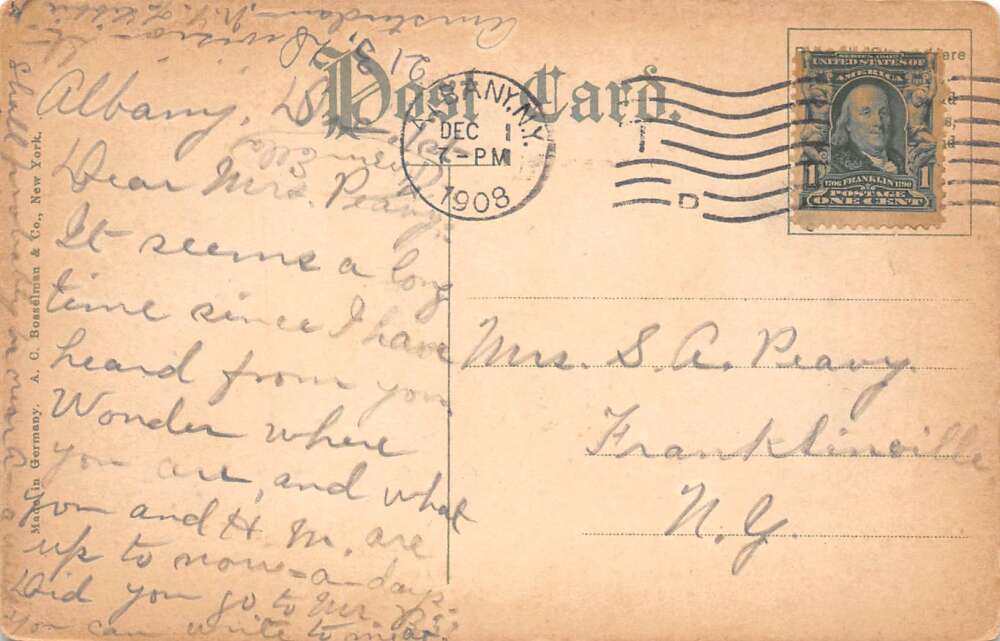 Post Card.
ALBANY, N.Y.
DEC 1
7-PM
1908
D
SERIES 1902
UNITED STATES OF
AMERICA
1 1
1706 FRANKLIN 1790
POSTAGE
ONE CENT
Albany,
Dear Mrs. Peavy.
It seems a long
time since I have
heard from you.
Wonder where
you are, and what
you and H. M. are
up to now-a-days.
Did you go to Mr.
You can write to me
Ella
Mrs. S. A. Peavy.
Franklinville
N.Y.
Made in Germany. A. C. Bosselman & Co., New York.
I shall probably
Amsterdam, N.Y.
Division St.